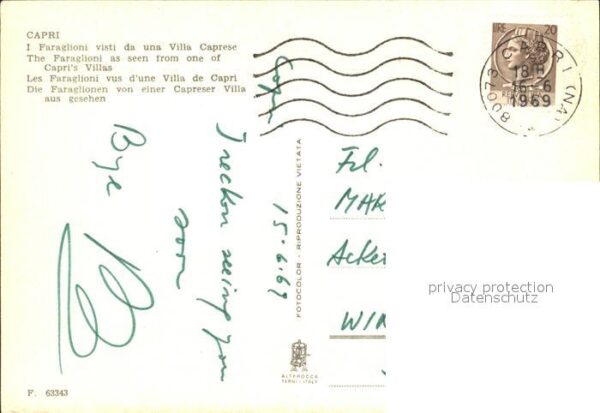 CAPRI
I Faraglioni visti da una Villa Caprese
The Faraglioni as seen from one of
Capri's Villas
Les Faraglioni vus d'une Villa de Capri
Die Faraglionen von einer Capreser Villa
aus gesehen
LIRE 20
80073 CAPRI (NA)
18H
16-6
1969
Capri
15.6.69
I reckon seeing you
soon
Bye
FOTOCOLOR - RIPRODUZIONE VIETATA
Frl.
MAR
Acker
WIN
privacy protection
Datenschutz
ALTEROCCA
TERNI-ITALY
F. 63343